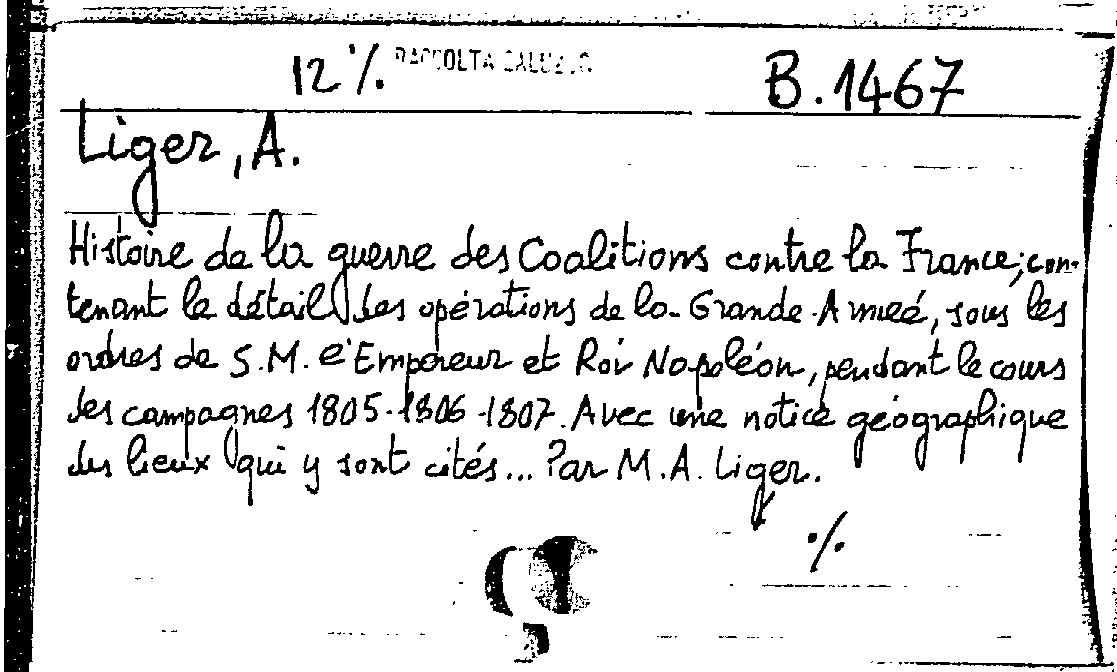 12 ./. RACCOLTA B.1467
Liger, A.
Histoire de la guerre des Coalitions contre la France; con-
tenant le détail des opérations de la Grande Armeé, sous les
ordres de S.M. l'Empereur et Roi Napoléon, pendant le cours
des campagnes 1805-1806-1807. Avec une notice géographique
des lieux qui y sont cités... Par M.A. Liger.
./.